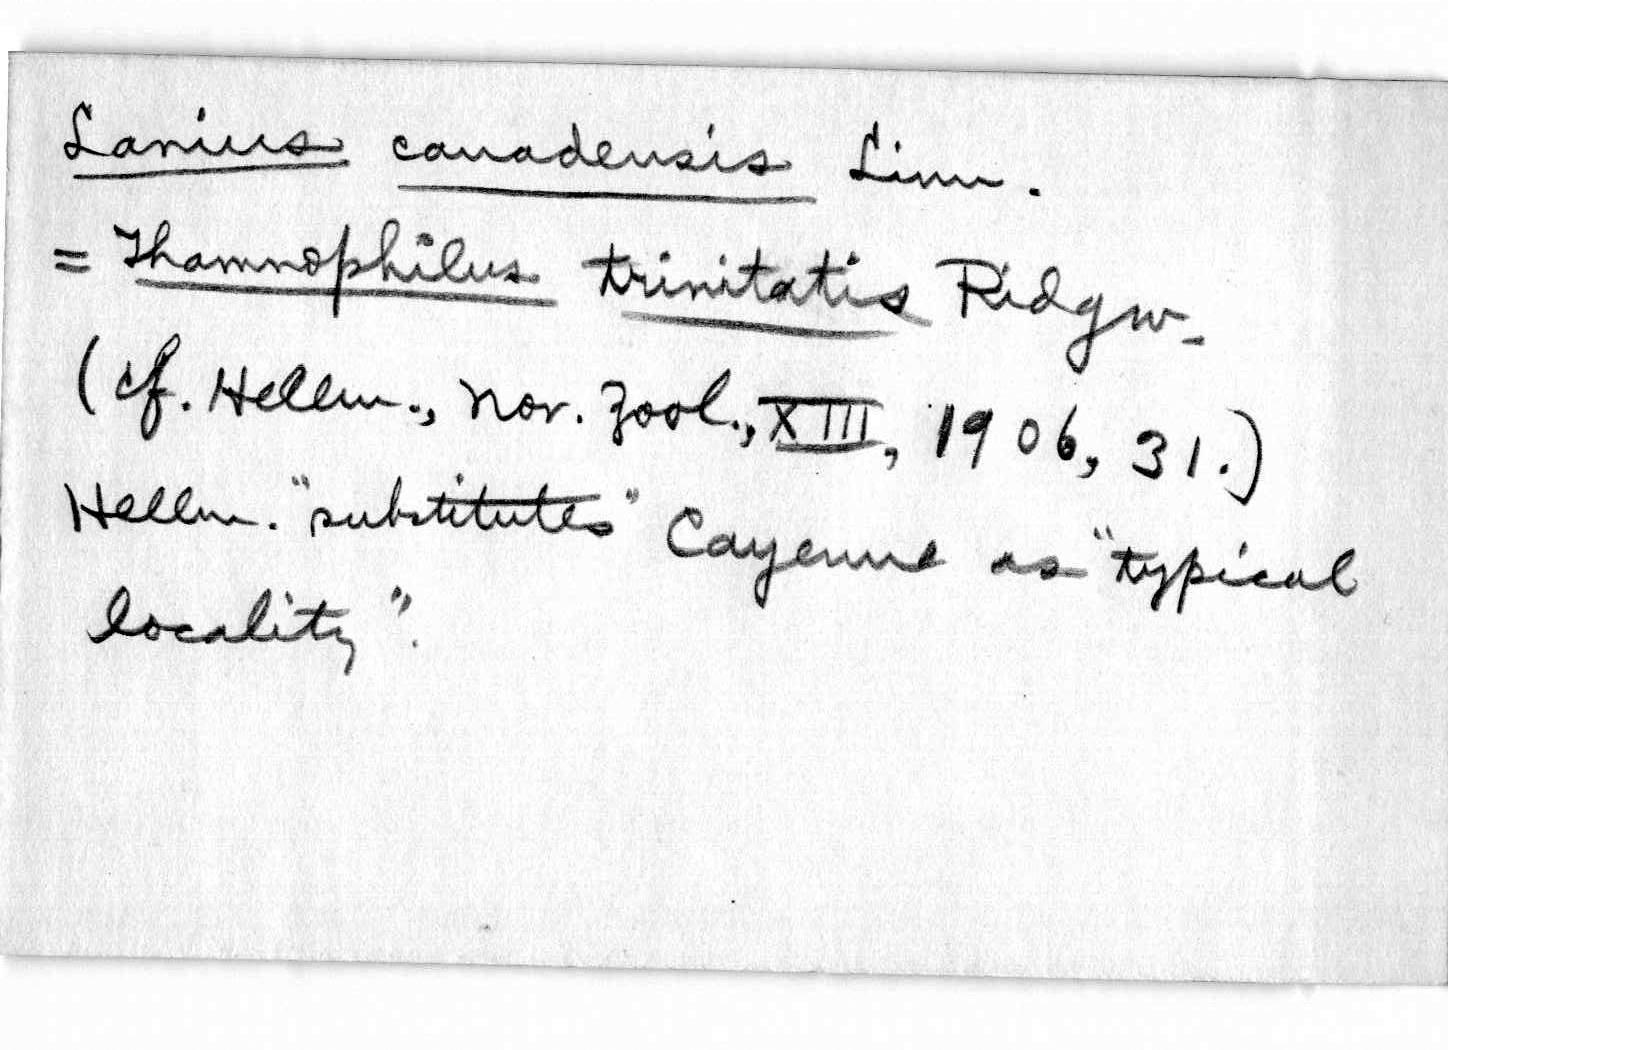 Lanius canadensis Linn.
= Thamnophilus trinitatis Ridgw.
(cf. Hellm., Nov. Zool., XIII, 1906, 31.)
Hellm. "substitutes" Cayenne as "typical
locality".